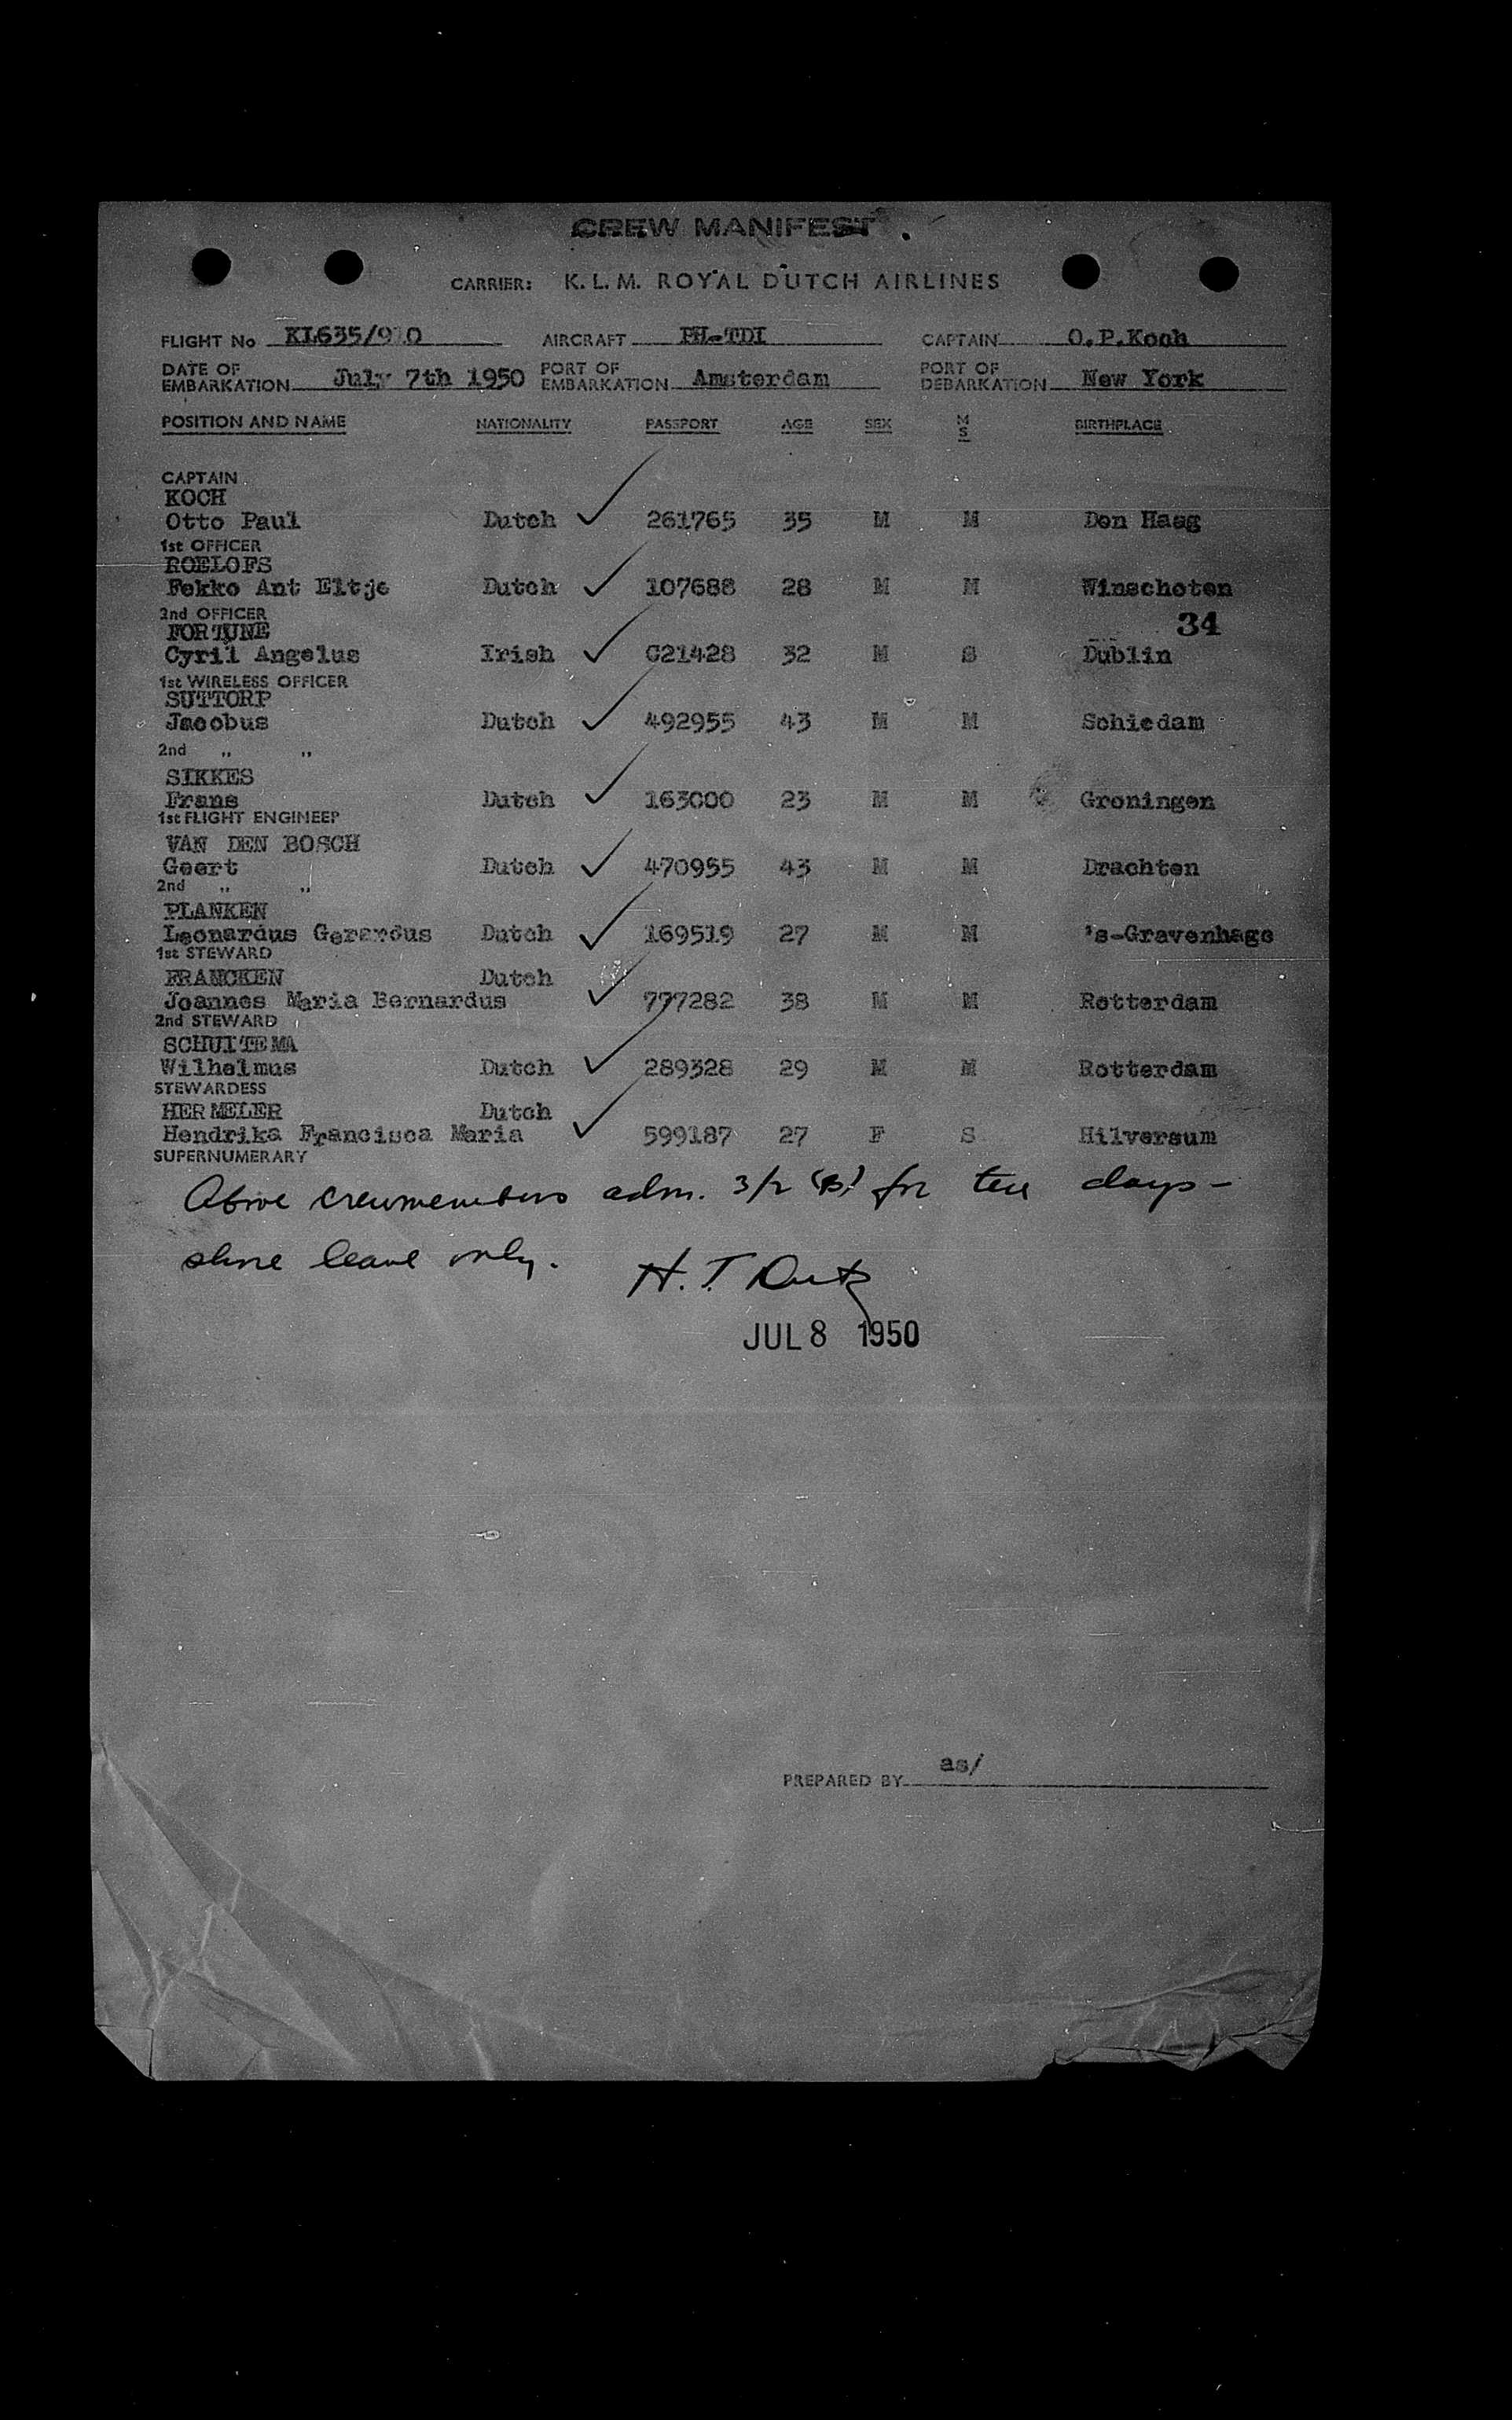 CREW MANIFEST
CARRIER: K. L. M. ROYAL DUTCH AIRLINES
FLIGHT No KL635/910 AIRCRAFT PH-TDI CAPTAIN O.P.Koch
DATE OF EMBARKATION July 7th 1950 PORT OF EMBARKATION Amsterdam PORT OF DEBARKATION New York
POSITION AND NAME NATIONALITY PASSPORT AGE SEX M S BIRTHPLACE
CAPTAIN
KOCH
Otto Paul Dutch 261765 35 M M Den Haag
1st OFFICER
ROELOFS
Fekko Ant Eltje Dutch 107688 28 M M Winschoten
2nd OFFICER
34
FORTUNE
Cyril Angelus Irish C21428 32 M S Dublin
1st WIRELESS OFFICER
SUTTORP
Jacobus Dutch 492955 43 M M Schiedam
2nd „ „
SIKKES
Frans Dutch 163000 23 M M Groningen
1st FLIGHT ENGINEER
VAN DEN BOSCH
Geert Dutch 470955 43 M M Drachten
2nd „ „
PLANKEN
Leonardus Gerardus Dutch 169519 27 M M 's-Gravenhage
1st STEWARD
FRANCKEN Dutch
Joannes Maria Bernardus 777282 38 M M Rotterdam
2nd STEWARD
SCHUITEMA
Wilhelmus Dutch 289328 29 M M Rotterdam
STEWARDESS
HERMELER Dutch
Hendrika Francisca Maria 599187 27 F S Hilversum
SUPERNUMERARY
Above crewmembers adm. 3/2 (5) for ten days -
shore leave only. H. T.
JUL 8 1950
PREPARED BY as/